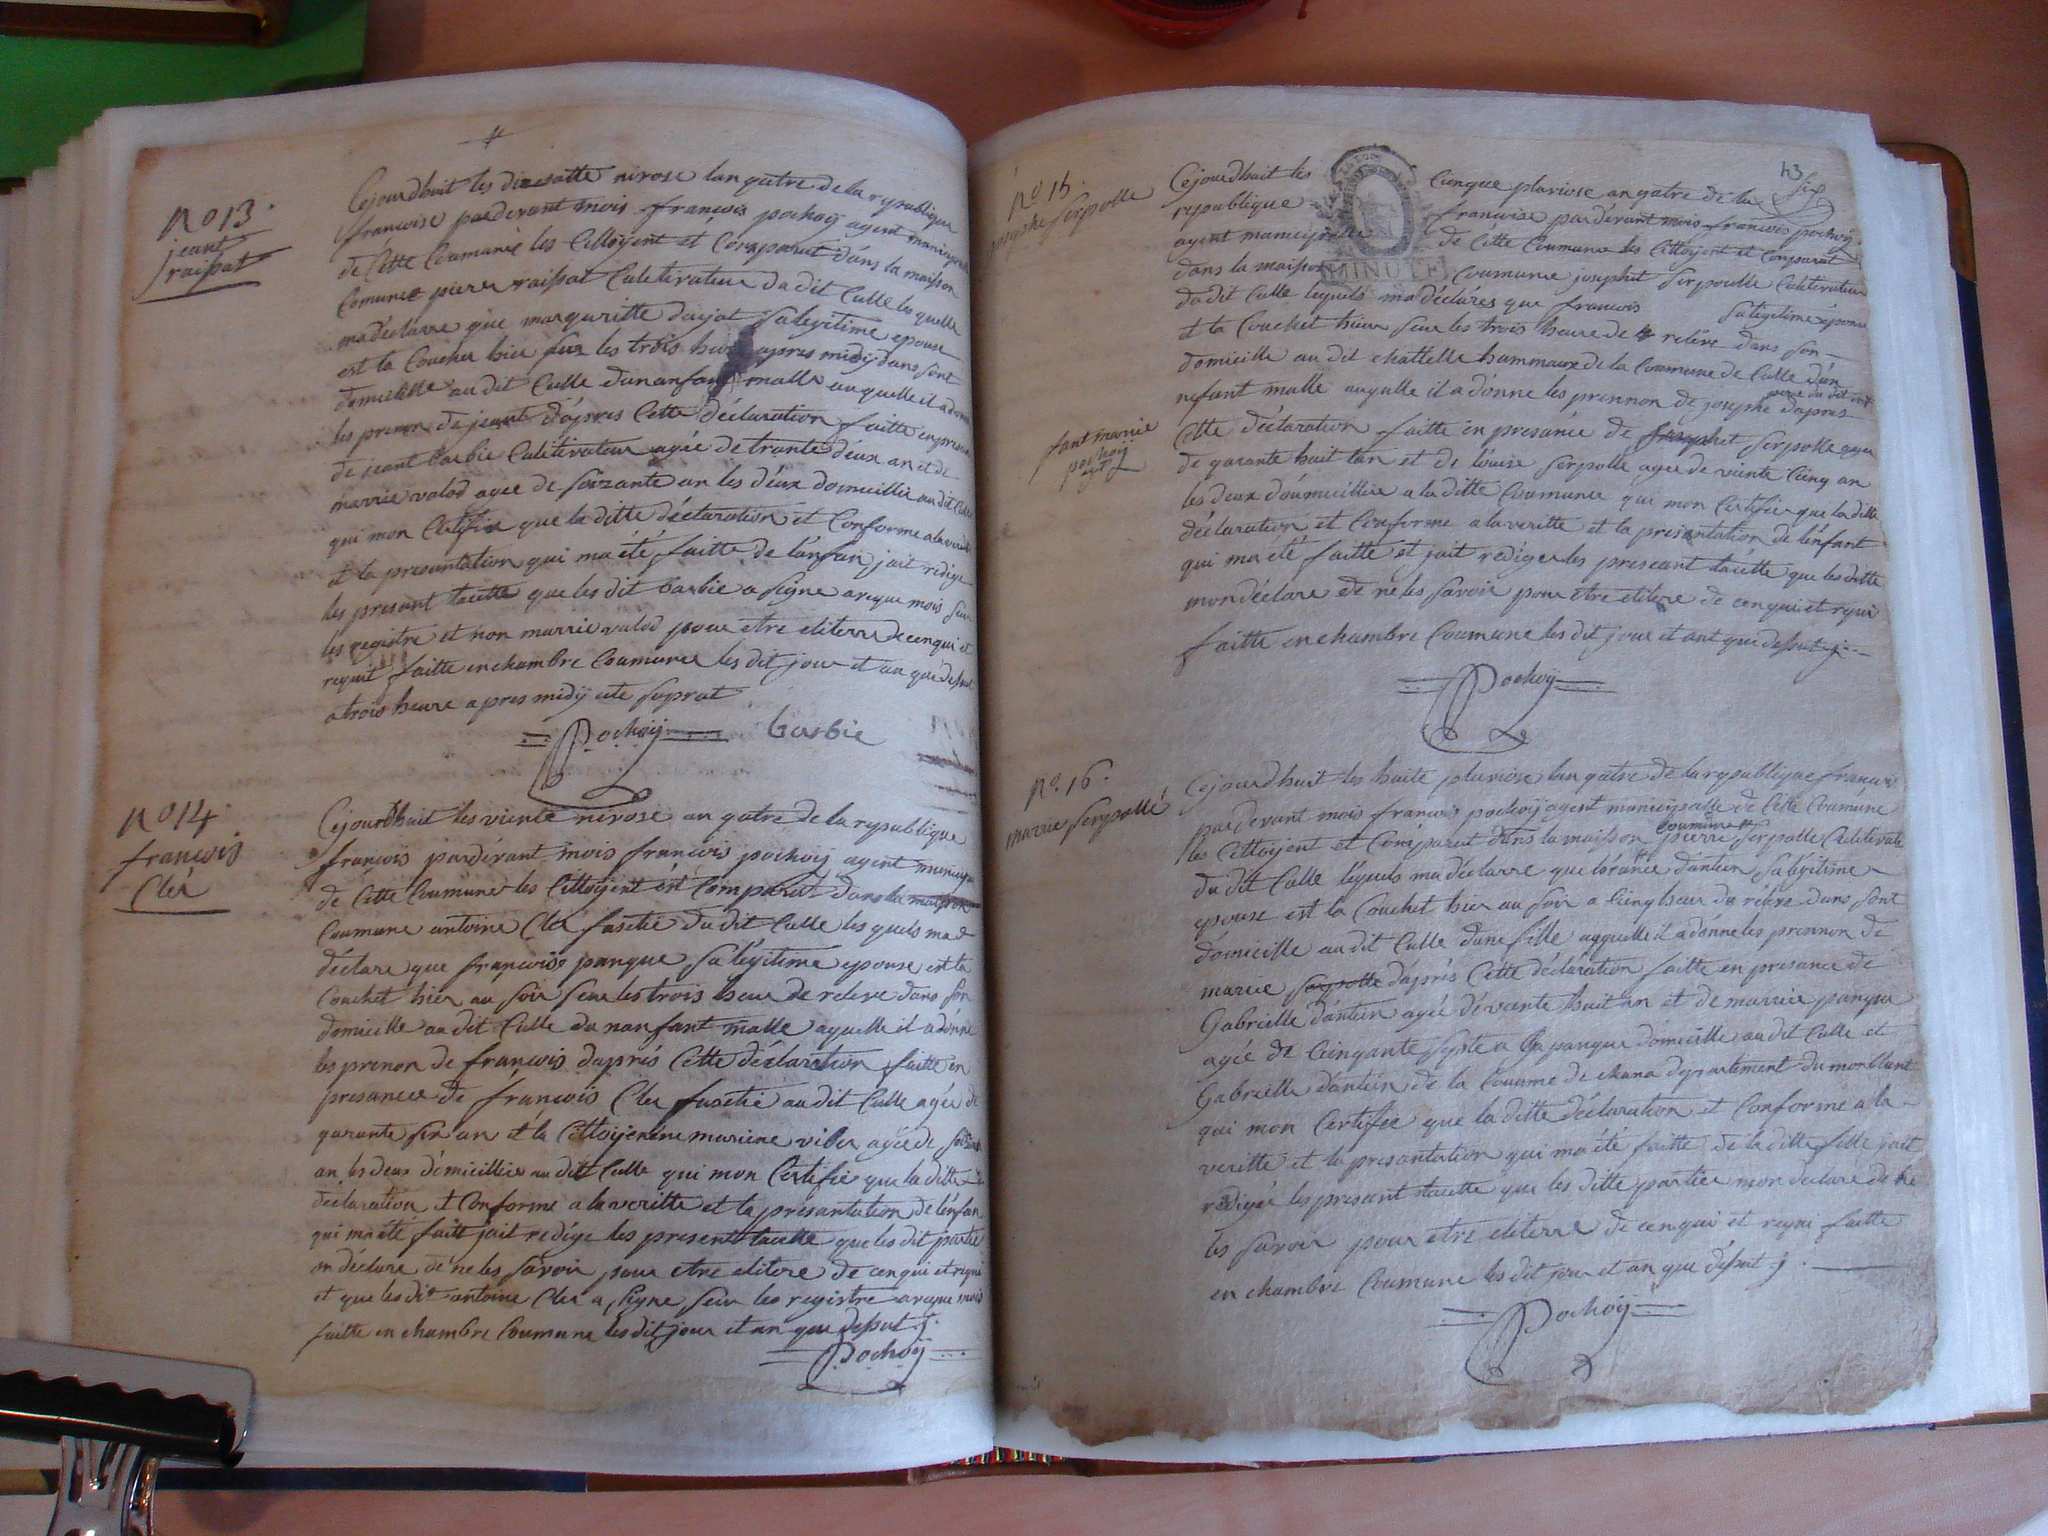 No 13.
jeant
raissat
Cejourdhuit les diessatte nivose lan qatre de la repeublique
francoise pardevant mois francois pochoij agent municipalle
de Cette Coumune les Cittoijent et Comparut dans la maisson
Comune pierre raissat Culetivateur du dit Culle les quelle
ma déclare que marguritte dujat sa legitime epouse
est la Coucher hier sur les trois heure apres midij dans sont
domicille au dit Culle dun anfant malle auquelle il a donne
les prenon de jeant d'apres Cette déclaration faitte en presence
de jeant barbie Culetivateur agée de trante deux an et de
marrie valod agee de soizante an les deux domicillie au dit Culle
qui mon Certifie que la ditte déclaration et Conforme a la veritte
et la presentation qui ma été faitte de l'anfan jait redige
les present tacette que les dit barbie a signe aveque mois sur
les registre et non marrie valod pour etre elitere de cenqui et
requit faitte en chambre Coumune les dit jour et an que dessut
a trois heure apres midij cete soprat
Pochoij barbie
No 14.
francois
Cler
Cejourdhuit les viente nivose an qatre de la repeublique
françois pardévant mois francois pochoij agent municipa
de Cette Coumune les Cittoijent et Comparut dans la maisson
Coumune antoine Cler du dit Culle les quels ma
déclare que françoise panque sa légitime epouse est la
Couchet hier au soir seur les trois heur de releve dans son
domicille au dit Culle du nanfant malle aquelle il a donne
les prenon de francois dapres Cette déclaration faitte en
presance de francois Cler au dit Culle agée de
qarante six an et la Cittoijenne mariene viber agée de soizante
an les deux domicillies au dit Culle qui mon Certifie que la ditte
déclaration et Conforme a la veritte et la presantation de lénfan
qui ma été faitte jait redige les present tacette que les dit partie
on déclare de ne les savoir pour etre elitere de cenqui et requi
et que les dit antoine Cler a signe seur les registre aveque mois
faitte en chambre Coumune les dit jour et an que dessut .j.
Pochoij
43
No 15.
josephe serpolle
MINUTE
Cejourdhuit les Cinque pluviose an qatre de la
republique francoise pardévant mois francois pochoij
agent municipalle de Cette Coumune les Cittoijent et Comparut
dans la maisson Coumune josephet serpolle Culetivateur
du dit Culle lequels ma déclares que francois sa légitime épouse
et la Couchet hier seur les trois heure de releve dans son
domicille au dit chattelle hammaux de la Coumune de Culle d'un
nefant malle auqulle il a donne les prennon de josephe d'apres
Cette déclaration faitte en presance de josephet serpolle agee
de qarante huit lan et de louise serpolle agee de viente Cinq an
les deux doumicilliee a la ditte Coumune qui mon Certifie que la ditte
déclaration et Conforme a la veritte et la presentation de l'enfant
qui ma été faitte et jait redige les present tacette que les ditte
mon déclare de ne les savoir pour etre elitere de cenqui et requi
faitte en chambre Coumune les dit jour et ant que dessut .j.
fant marrie
pochoij
agt
Pochoij
No. 16.
marrie serpolle
Cejourdhuit les huite pluviose lan qatre de la repeublique francois
pardevant mois francois pochoij agent municipalle de Cette Coumune
les Cittoijent et Comparut dans la maisson Coumune pierre serpolle Culetivate
du dit Culle léquels ma déclare que lorance dantin sa légitime
epouse est la Couchet hier au soir a Cinq heur du releve dans sont
domicille au dit Culle dune fille auquelle il a donne les prennon de
marrie serpolle d'aprés Cette déclaration faitte en presance de
Gabrielle dantin agée déxante huit an et de marrie panque
agée de Cinqante sijste a panque domicille au dit Culle et
Gabrielle dantin de la Coumme de chana departement du monblant
qui mon Certifie que la ditte déclaration et Conforme a la
veritte et la presantation qui ma été faitte de la ditte fille jait
redigée les present tacette que les ditte partiee mon declare de ne
les savoir pour etre elitere de cenqui et requi faitte
en chambre Coumune les dit jour et an que déssut .j.
Pochoij